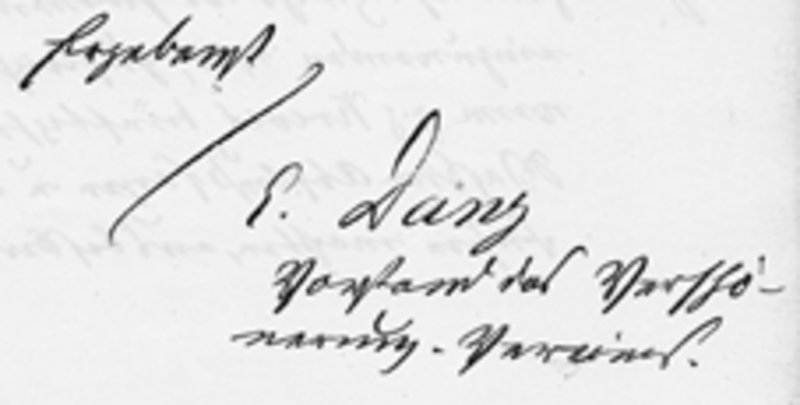 Ergebenst
E. Dainz
Vorstand des Verschö-
nerung-Vereines.